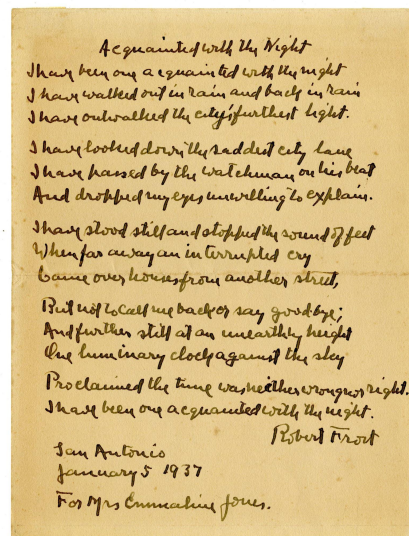 Acquainted with the Night
I have been one acquainted with the night
I have walked out in rain and back in rain
I have outwalked the city's furthest light.
I have looked down the saddest city lane
I have passed by the watchman on his beat
And dropped my eyes unwilling to explain.
I have stood still and stopped the sound of feet
When far away an interrupted cry
Came over houses from another street,
But not to call me back or say good bye;
And further still at an unearthly height
One luminary clock against the sky
Proclaimed the time was neither wrong nor right.
I have been one acquainted with the night.
Robert Frost
San Antonio
January 5 1937
For Mrs Emmaline Jones.